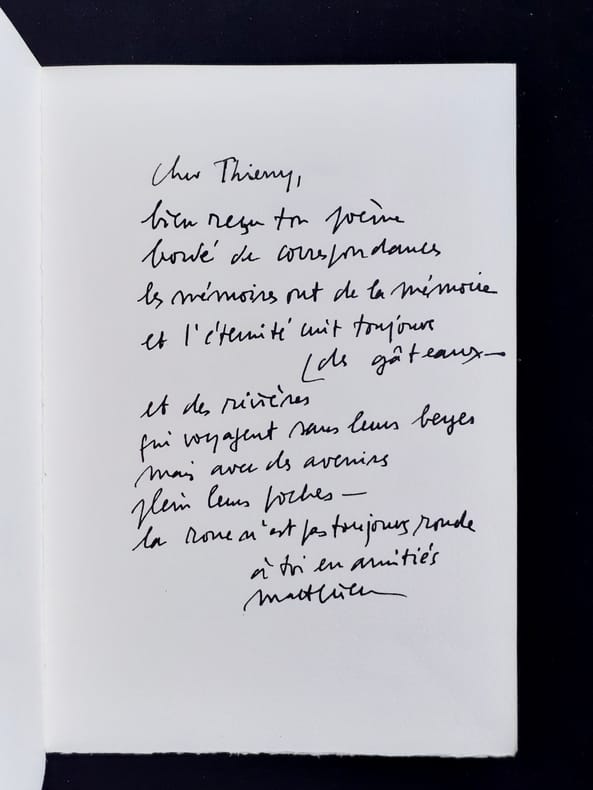 Cher Thierry,
bien reçu ton poème
bordé de correspondances
les mémoires ont de la mémoire
et l'éternité cuit toujours
[des gâteaux—
et des rivières
qui voyagent sans leurs berges
mais avec des avenirs
plein leurs poches —
la roue n'est pas toujours ronde
à toi en amitiés
Matthieu